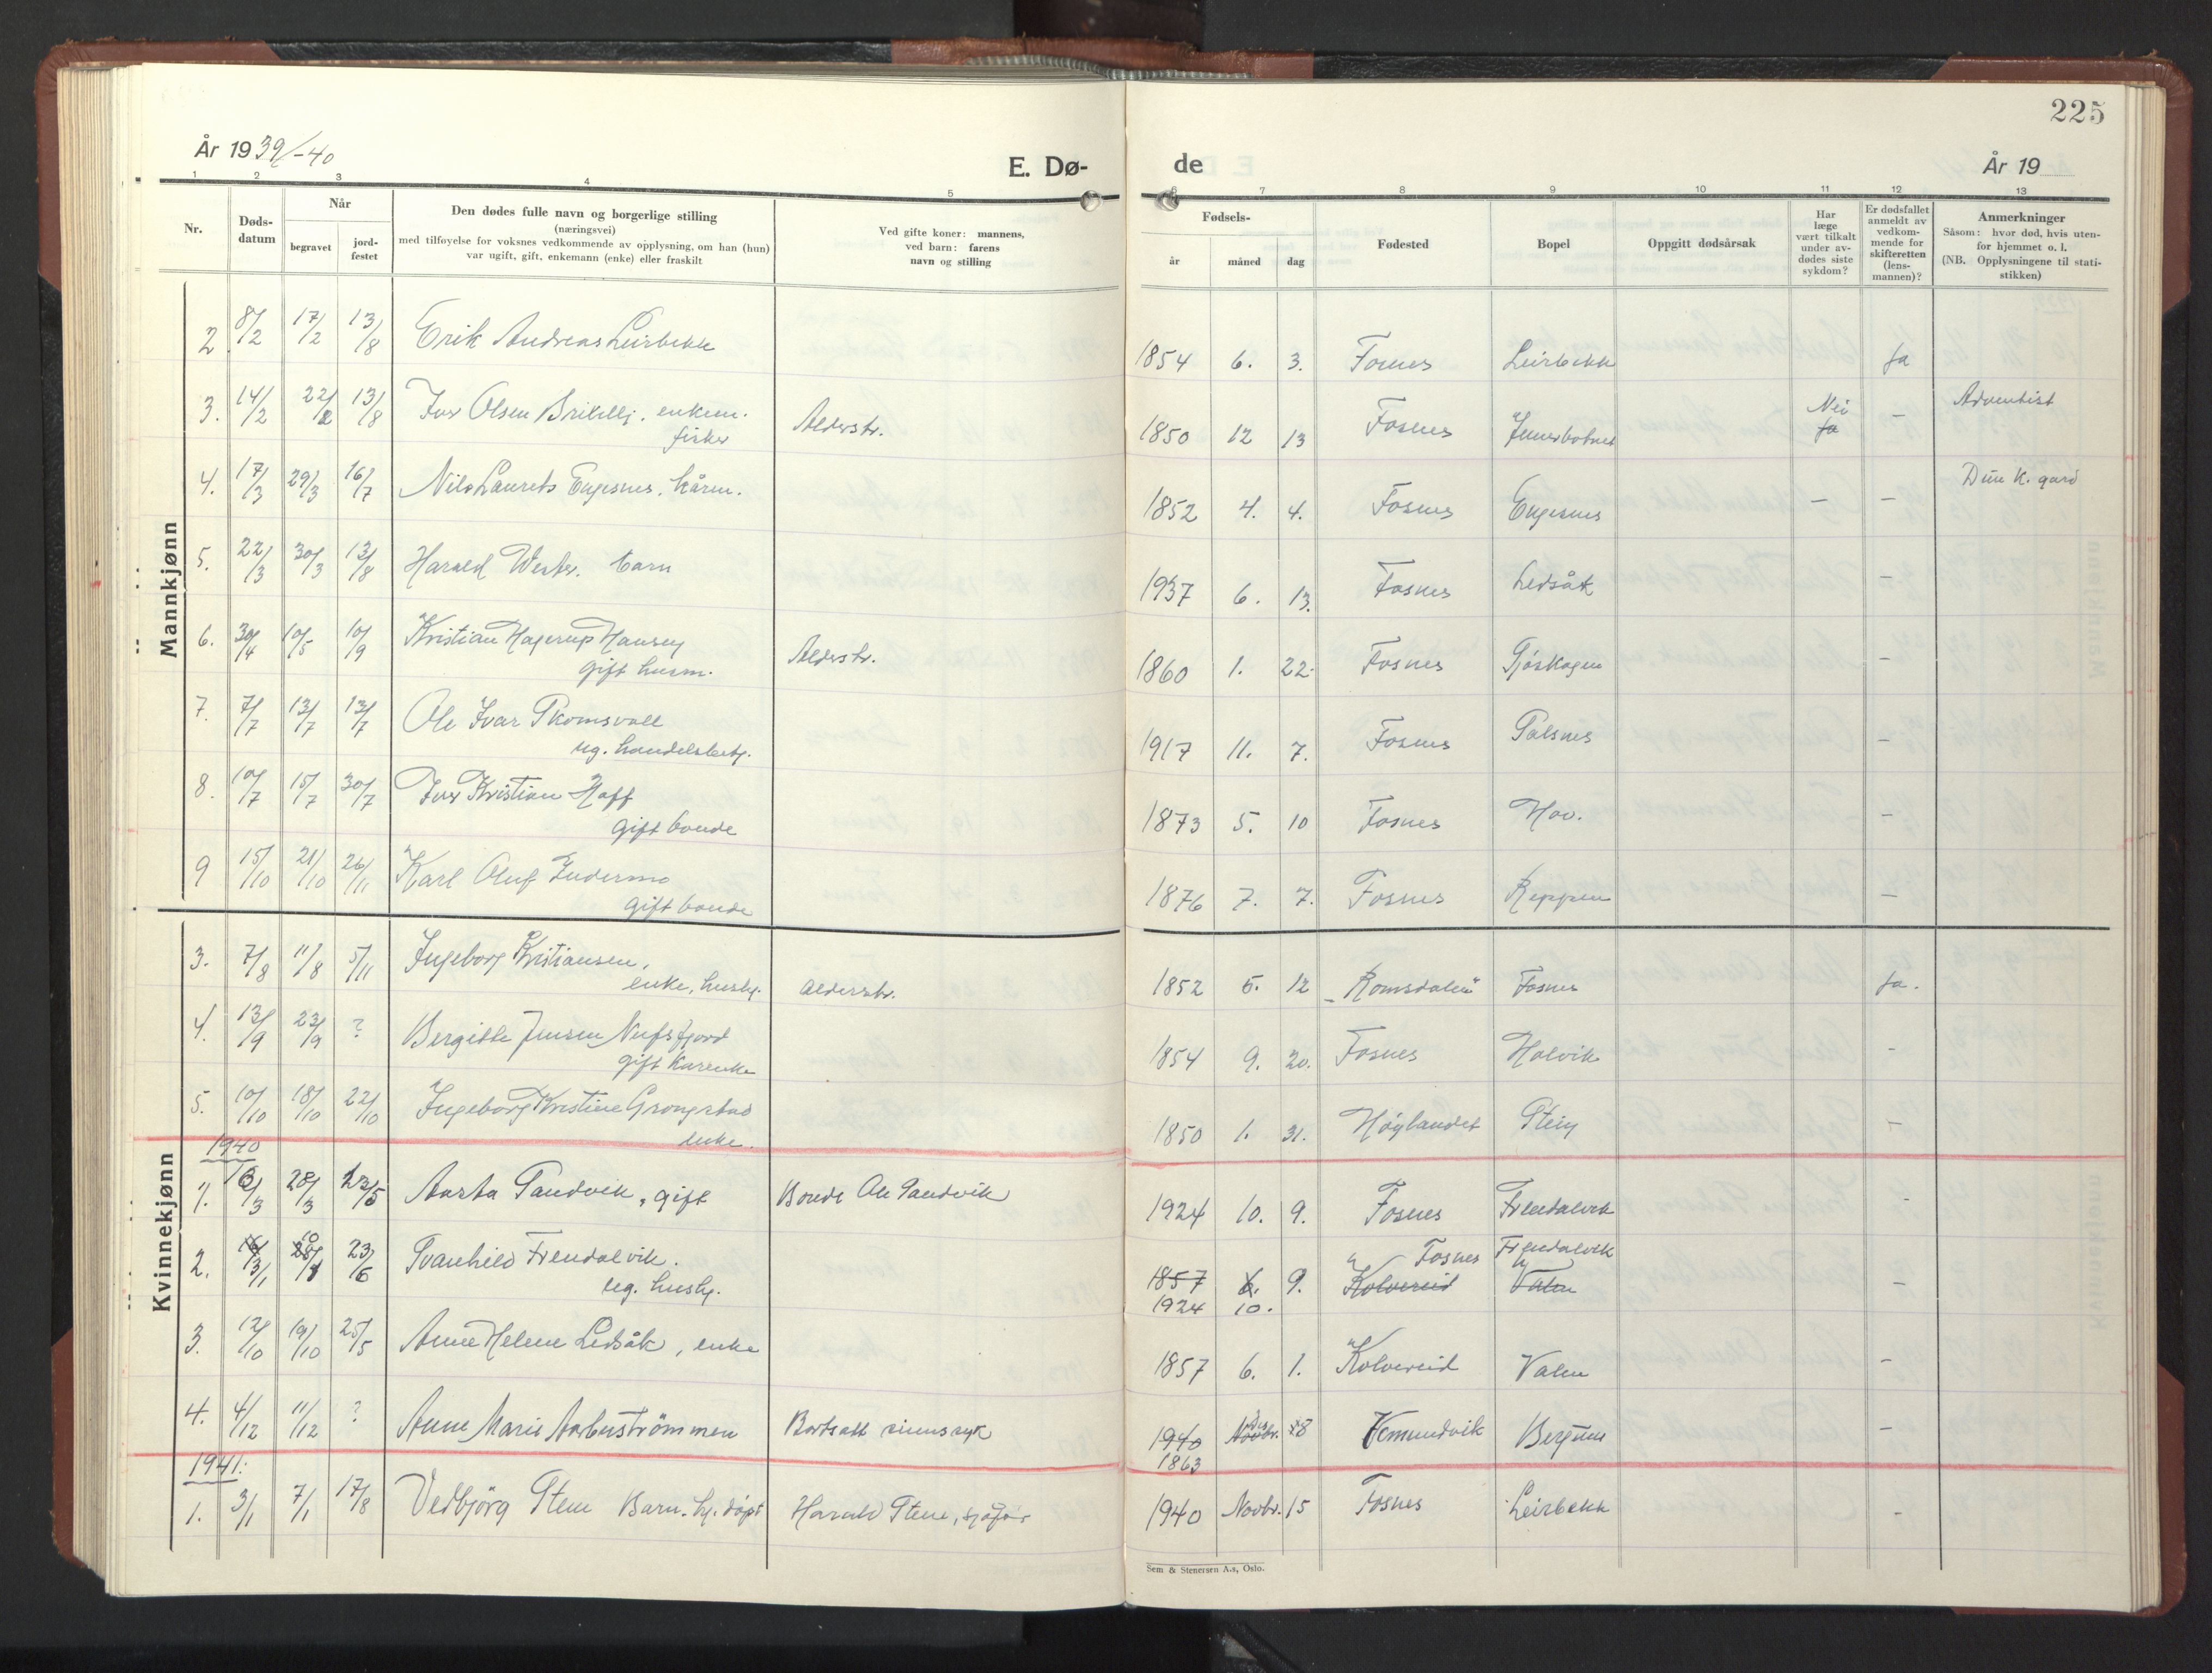 225
År 1939/-40
E. Dø-
de
År 19
1 2 3 4 5 6 7 8 9 10 11 12 13
Nr.
Døds-
datum
Når
begravet
jord-
festet
Den dødes fulle navn og borgerlige stilling
(næringsvei)
med tilføyelse for voksnes vedkommende av opplysning, om han (hun)
var ugift, gift, enkemann (enke) eller fraskilt
Ved gifte koner: mannens,
ved barn: farens
navn og stilling
Fødsels-
år måned dag
Fødested
Bopel
Oppgitt dødsårsak
Har
læge
vært tilkalt
under av-
dødes siste
sykdom?
Er dødsfallet
anmeldt av
vedkom-
mende for
skifteretten
(lens-
mannen)?
Anmerkninger
Såsom: hvor død, hvis uten-
for hjemmet o. l.
(NB. Opplysningene til stati-
stikken)
Mannkjønn
2 8/2 17/2 13/8 Erik Andreas Leirbekk 1854 6. 3. Fosnes Leirbekk Ja
3. 14/2 22/2 13/8 Olsen enkem. Alderstr. 1850 12 13 Fosnes Nei Ja - Adventist
fisker
4. 17/3 29/3 16/7 Nils Laurits Engesnes, kårm. 1852 4. 4. Fosnes Engesnes - - K. gard
5. 22/3 30/3 13/8 Harald barn 1937 6. 13. Fosnes Ledsåk -
6. 30/4 10/5 10/9 Kristian Hagerup Hansen Alderstr. 1860 1. 22. Fosnes -
gift husm.
7. 7/7 13/7 13/7 Ole Ivar Skomsvoll 1917 11. 7. Fosnes Salsnes -
ug. handelsbetj.
8. 10/7 15/7 30/7 Kristian Hoff 1873 5. 10 Fosnes Hov. -
gift bonde
9 15/10 21/10 26/11 Karl Oluf Indermo 1876 7. 7. Fosnes Reppen -
gift bonde
Kvinnekjønn
3. 7/8 11/8 5/11 Ingeborg Kristiansen, Alderstr. 1852 5. 12 "Romsdalen" Fosnes Ja.
enke, hush.
4. 13/9 23/9 ? Bergitte Jensen 1854 9. 20. Fosnes Holvik -
gift
5. 10/10 18/10 22/10 Ingeborg Kristine Grongstad 1850 1. 31. Høylandet Stein -
enke.
1940
1. 16/3 28/3 23/5 Aasta Sandvik, gift Bonde Ole Sandvik 1924 10. 9. Fosnes Frendalvik -
2. 13/1 23/6 Svanhild Frendalvik. 1857 6. 9. Kolvereid Valen -
ug. hush. 1924 10. Fosnes Frendalvik
3. 12/10 19/10 25/5 Anne Helene Ledsåk, enke 1857 6. 1. Kolvereid Valen -
4. 4/12 11/12 ? Anne Marie Aarbuströmmen Bortsatt sinnssyk 1940 Novbr. 8 Vemundvik -
1863
1941:
1. 3/1 7/1 17/8 Vedbjörg Stene Barn. hj. döpt Harald Stene, sjåfør 1940 Novbr. 15 Fosnes Leirbekk -
Sem & Stenersen A.s, Oslo.